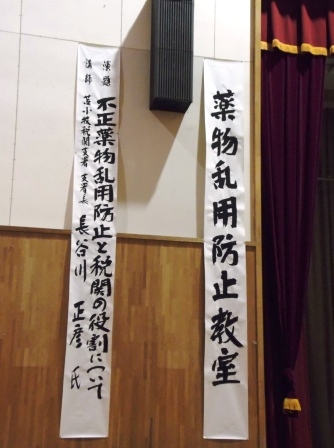 薬物乱用防止教室
演題 不正薬物乱用防止と税関の役割について
講師 苫小牧税関支署 支署長 長谷川 正彦 氏